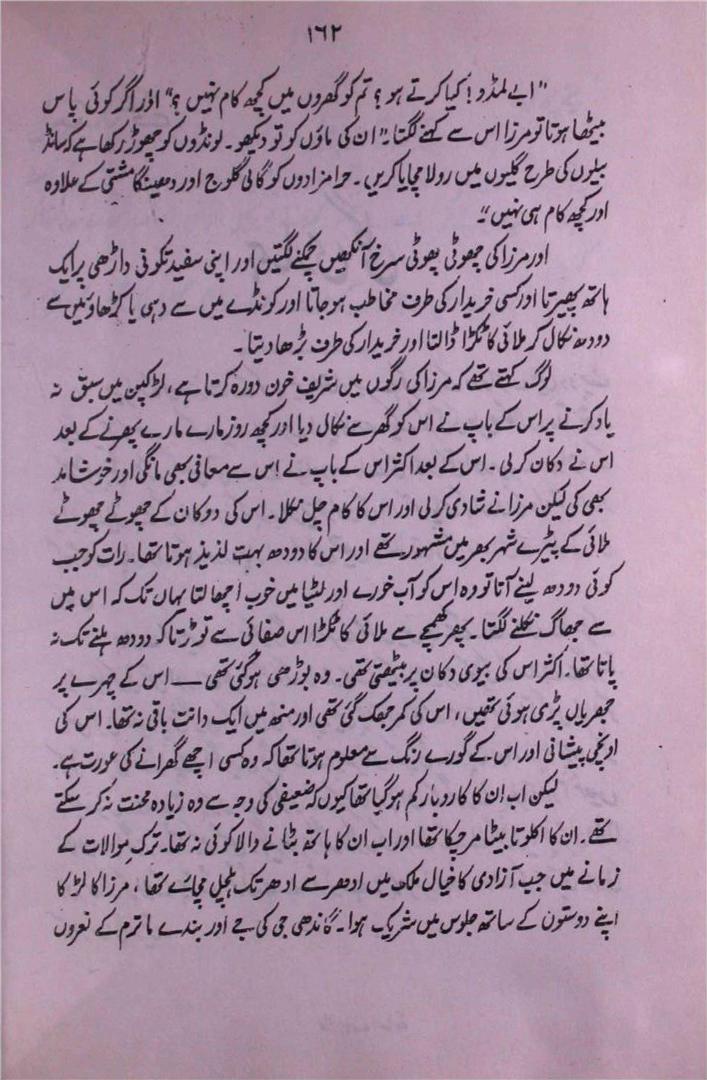 ۱۶۲
"ابے لمڈو! کیا کرتے ہو؟ تم کو گھروں میں کچھ کام نہیں؟" اور اگر کوئی پاس
بیٹھا ہوتا تو مرزا اس سے کہنے لگتا۔ "ان کی ماؤں کو تو دیکھو۔ لونڈوں کو چھوڑ رکھا ہے کہ سانڈ
بیلوں کی طرح گلیوں میں رولا مچایا کریں۔ حرامزادوں کو گالی گلوج اور دھینگا مشتی کے علاوہ
اور کچھ کام ہی نہیں"۔
اور مرزا کی چھوٹی چھوٹی سرخ آنکھیں چمکنے لگتیں اور اپنی سفید تکونی داڑھی پر ایک
ہاتھ پھیرتا اور کسی خریدار کی طرف مخاطب ہو جاتا اور کونڈے میں سے دہی یا کڑھاؤ میں سے
دودھ نکال کر ملائی کا ٹکڑا ڈالتا اور خریدار کی طرف بڑھا دیتا۔
لوگ کہتے تھے کہ مرزا کی رگوں میں شریف خون دورہ کرتا ہے، لڑکپن میں سبق نہ
یاد کرنے پر اس کے باپ نے اس کو گھر سے نکال دیا اور کچھ روز مارے مارے پھرنے کے بعد
اس نے دکان کر لی۔ اس کے بعد اکثر اس کے باپ نے اس سے معافی بھی مانگی اور خوشامد
بھی کی لیکن مرزا نے شادی کر لی اور اس کا کام چل نکلا۔ اس کی دوکان کے چھوٹے چھوٹے
ملائی کے پیڑے شہر بھر میں مشہور تھے اور اس کا دودھ بہت لذیذ ہوتا تھا۔ رات کو جب
کوئی دودھ لینے آتا تو وہ اس کو آب خورے اور لٹیا میں خوب اچھالتا یہاں تک کہ اس میں
سے جھاگ نکلنے لگتا۔ پھر کھمچے سے ملائی کا ٹکڑا اس صفائی سے توڑتا کہ دودھ ہلنے تک نہ
پاتا تھا۔ اکثر اس کی بیوی دکان پر بیٹھتی تھی۔ وہ بوڑھی ہو گئی تھی — اس کے چہرے پر
جھریاں پڑی ہوئی تھیں، اس کی کمر جھک گئی تھی اور منھ میں ایک دانت باقی نہ تھا۔ اس کی
اونچی پیشانی اور اس کے گورے رنگ سے معلوم ہوتا تھا کہ وہ کسی اچھے گھرانے کی عورت ہے۔
لیکن اب ان کا کاروبار کم ہو گیا تھا کیوں کہ ضعیفی کی وجہ سے وہ زیادہ محنت نہ کر سکتے
تھے۔ ان کا اکلوتا بیٹا مر چکا تھا اور اب ان کا ہاتھ بٹانے والا کوئی نہ تھا۔ ترک موالات کے
زمانے میں جب آزادی کا خیال ملک میں ادھر سے ادھر تک ہلچل مچائے تھا، مرزا کا لڑکا
اپنے دوستوں کے ساتھ جلوس میں شریک ہوا۔ گاندھی جی کی جے اور بندے ماترم کے نعروں